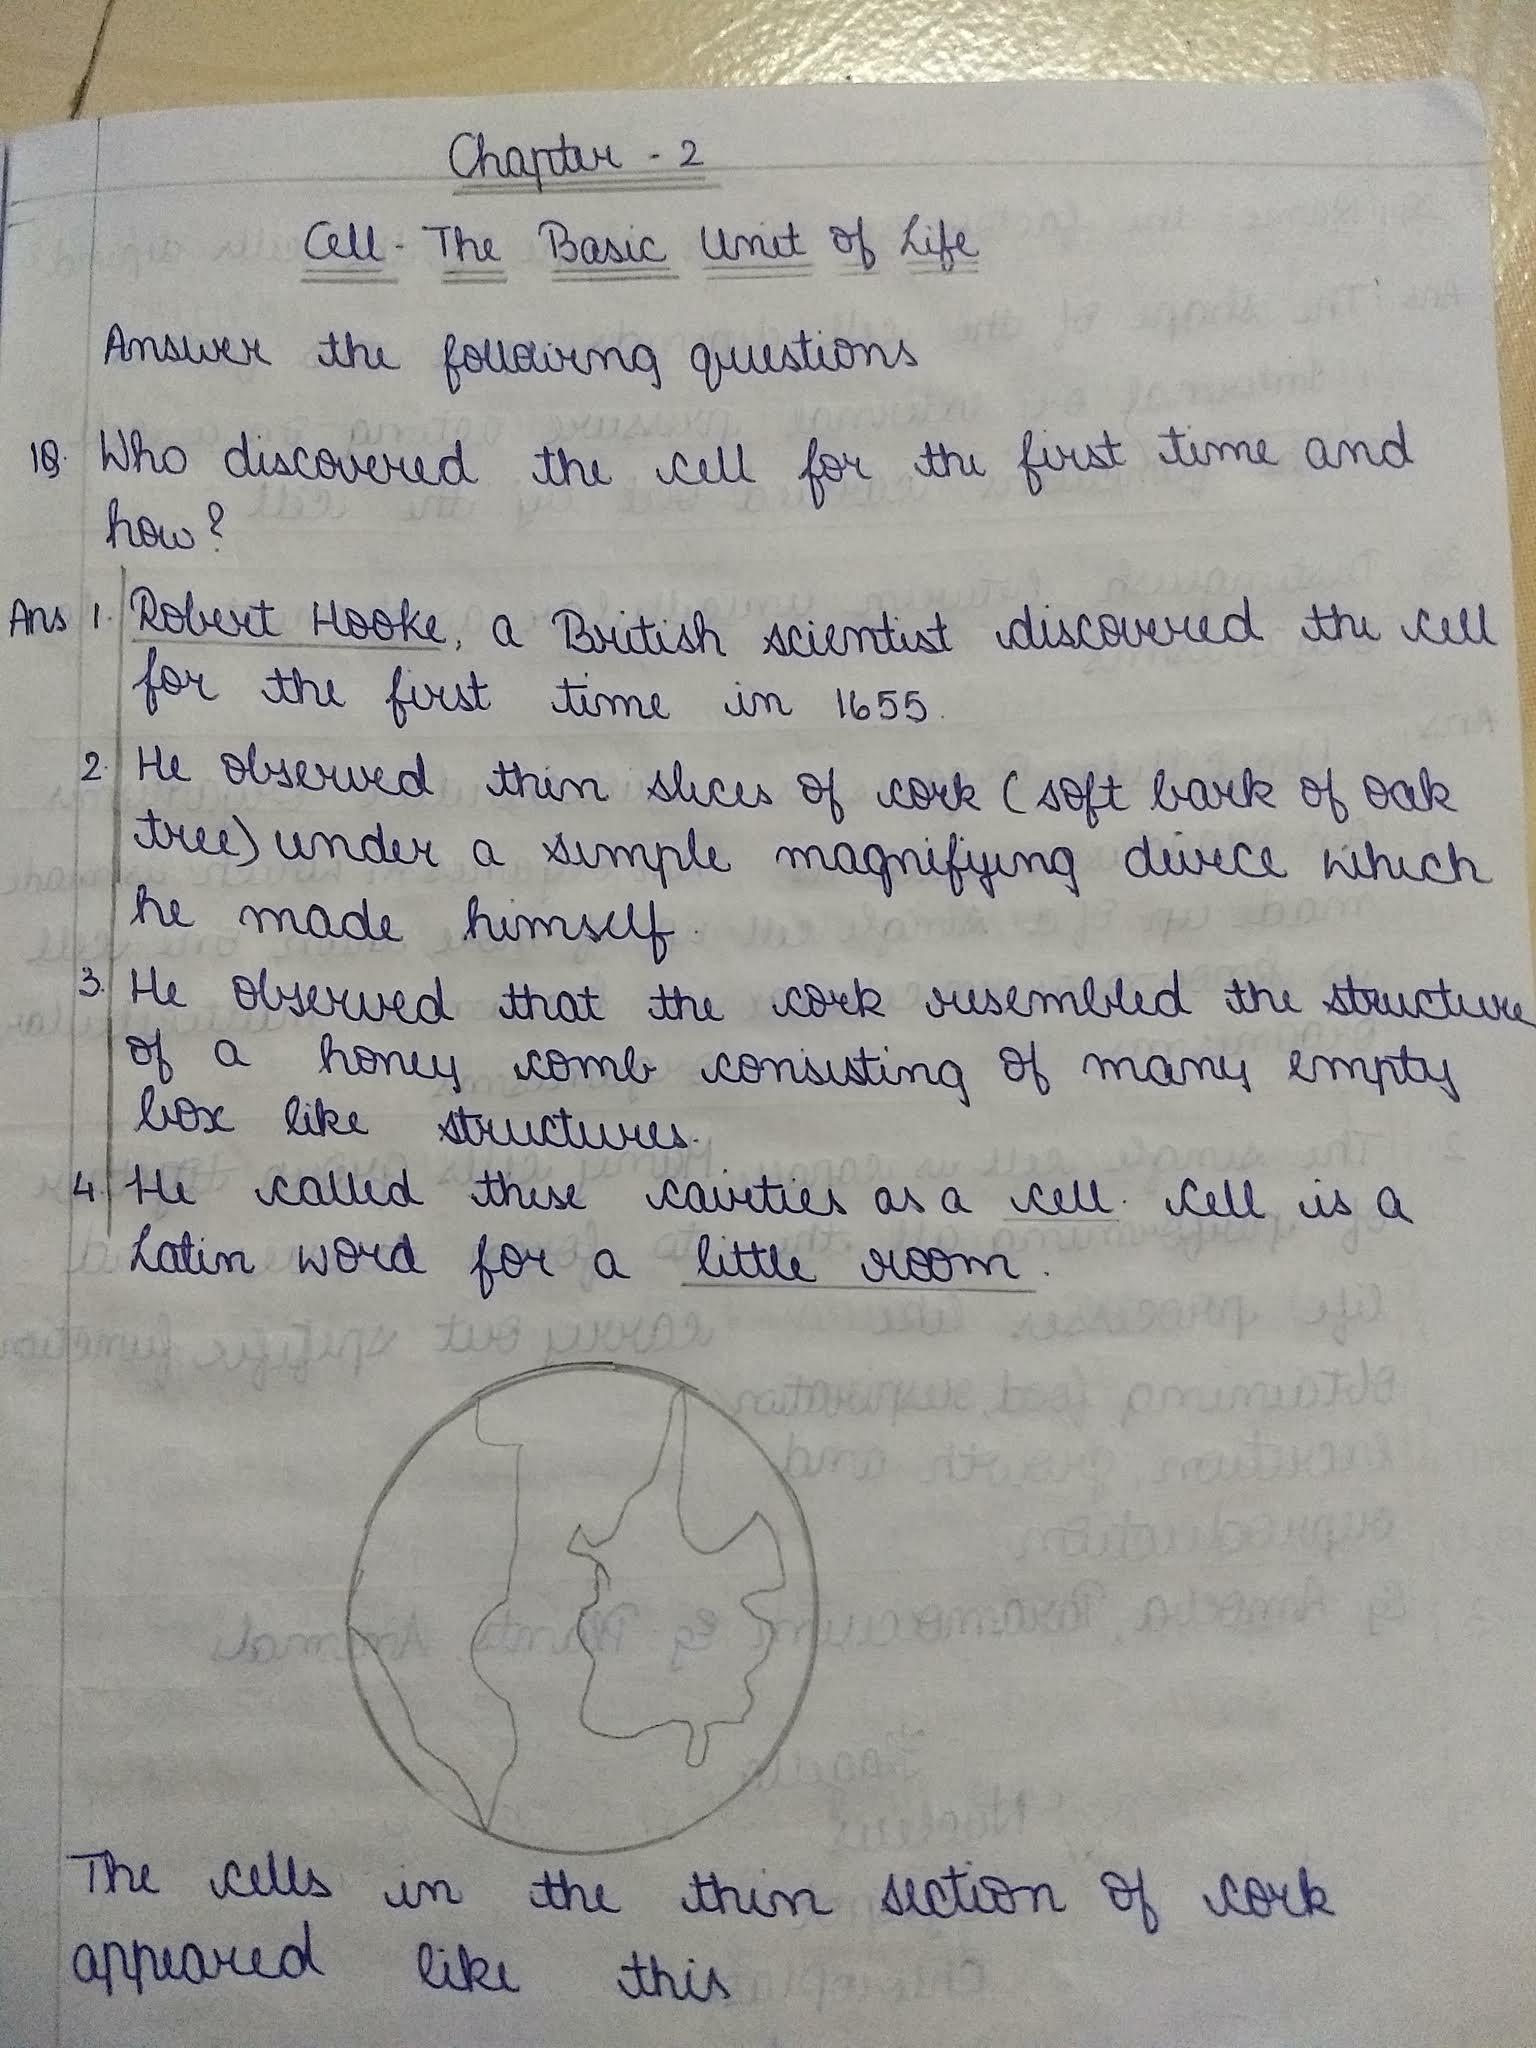 Chapter - 2
Cell - The Basic Unit of Life
Answer the following questions
1Q. Who discovered the cell for the first time and
how?
Ans 1. Robert Hooke, a British scientist discovered the cell
for the first time in 1655.
2. He observed thin slices of cork (soft bark of oak
tree) under a simple magnifying divice which
he made himself.
3. He observed that the cork resembled the structure
of a honey comb consisting of many empty
box like structures.
4. He called these cavities as a cell. Cell is a
Latin word for a little room.
The cells in the thin section of cork
appeared like this